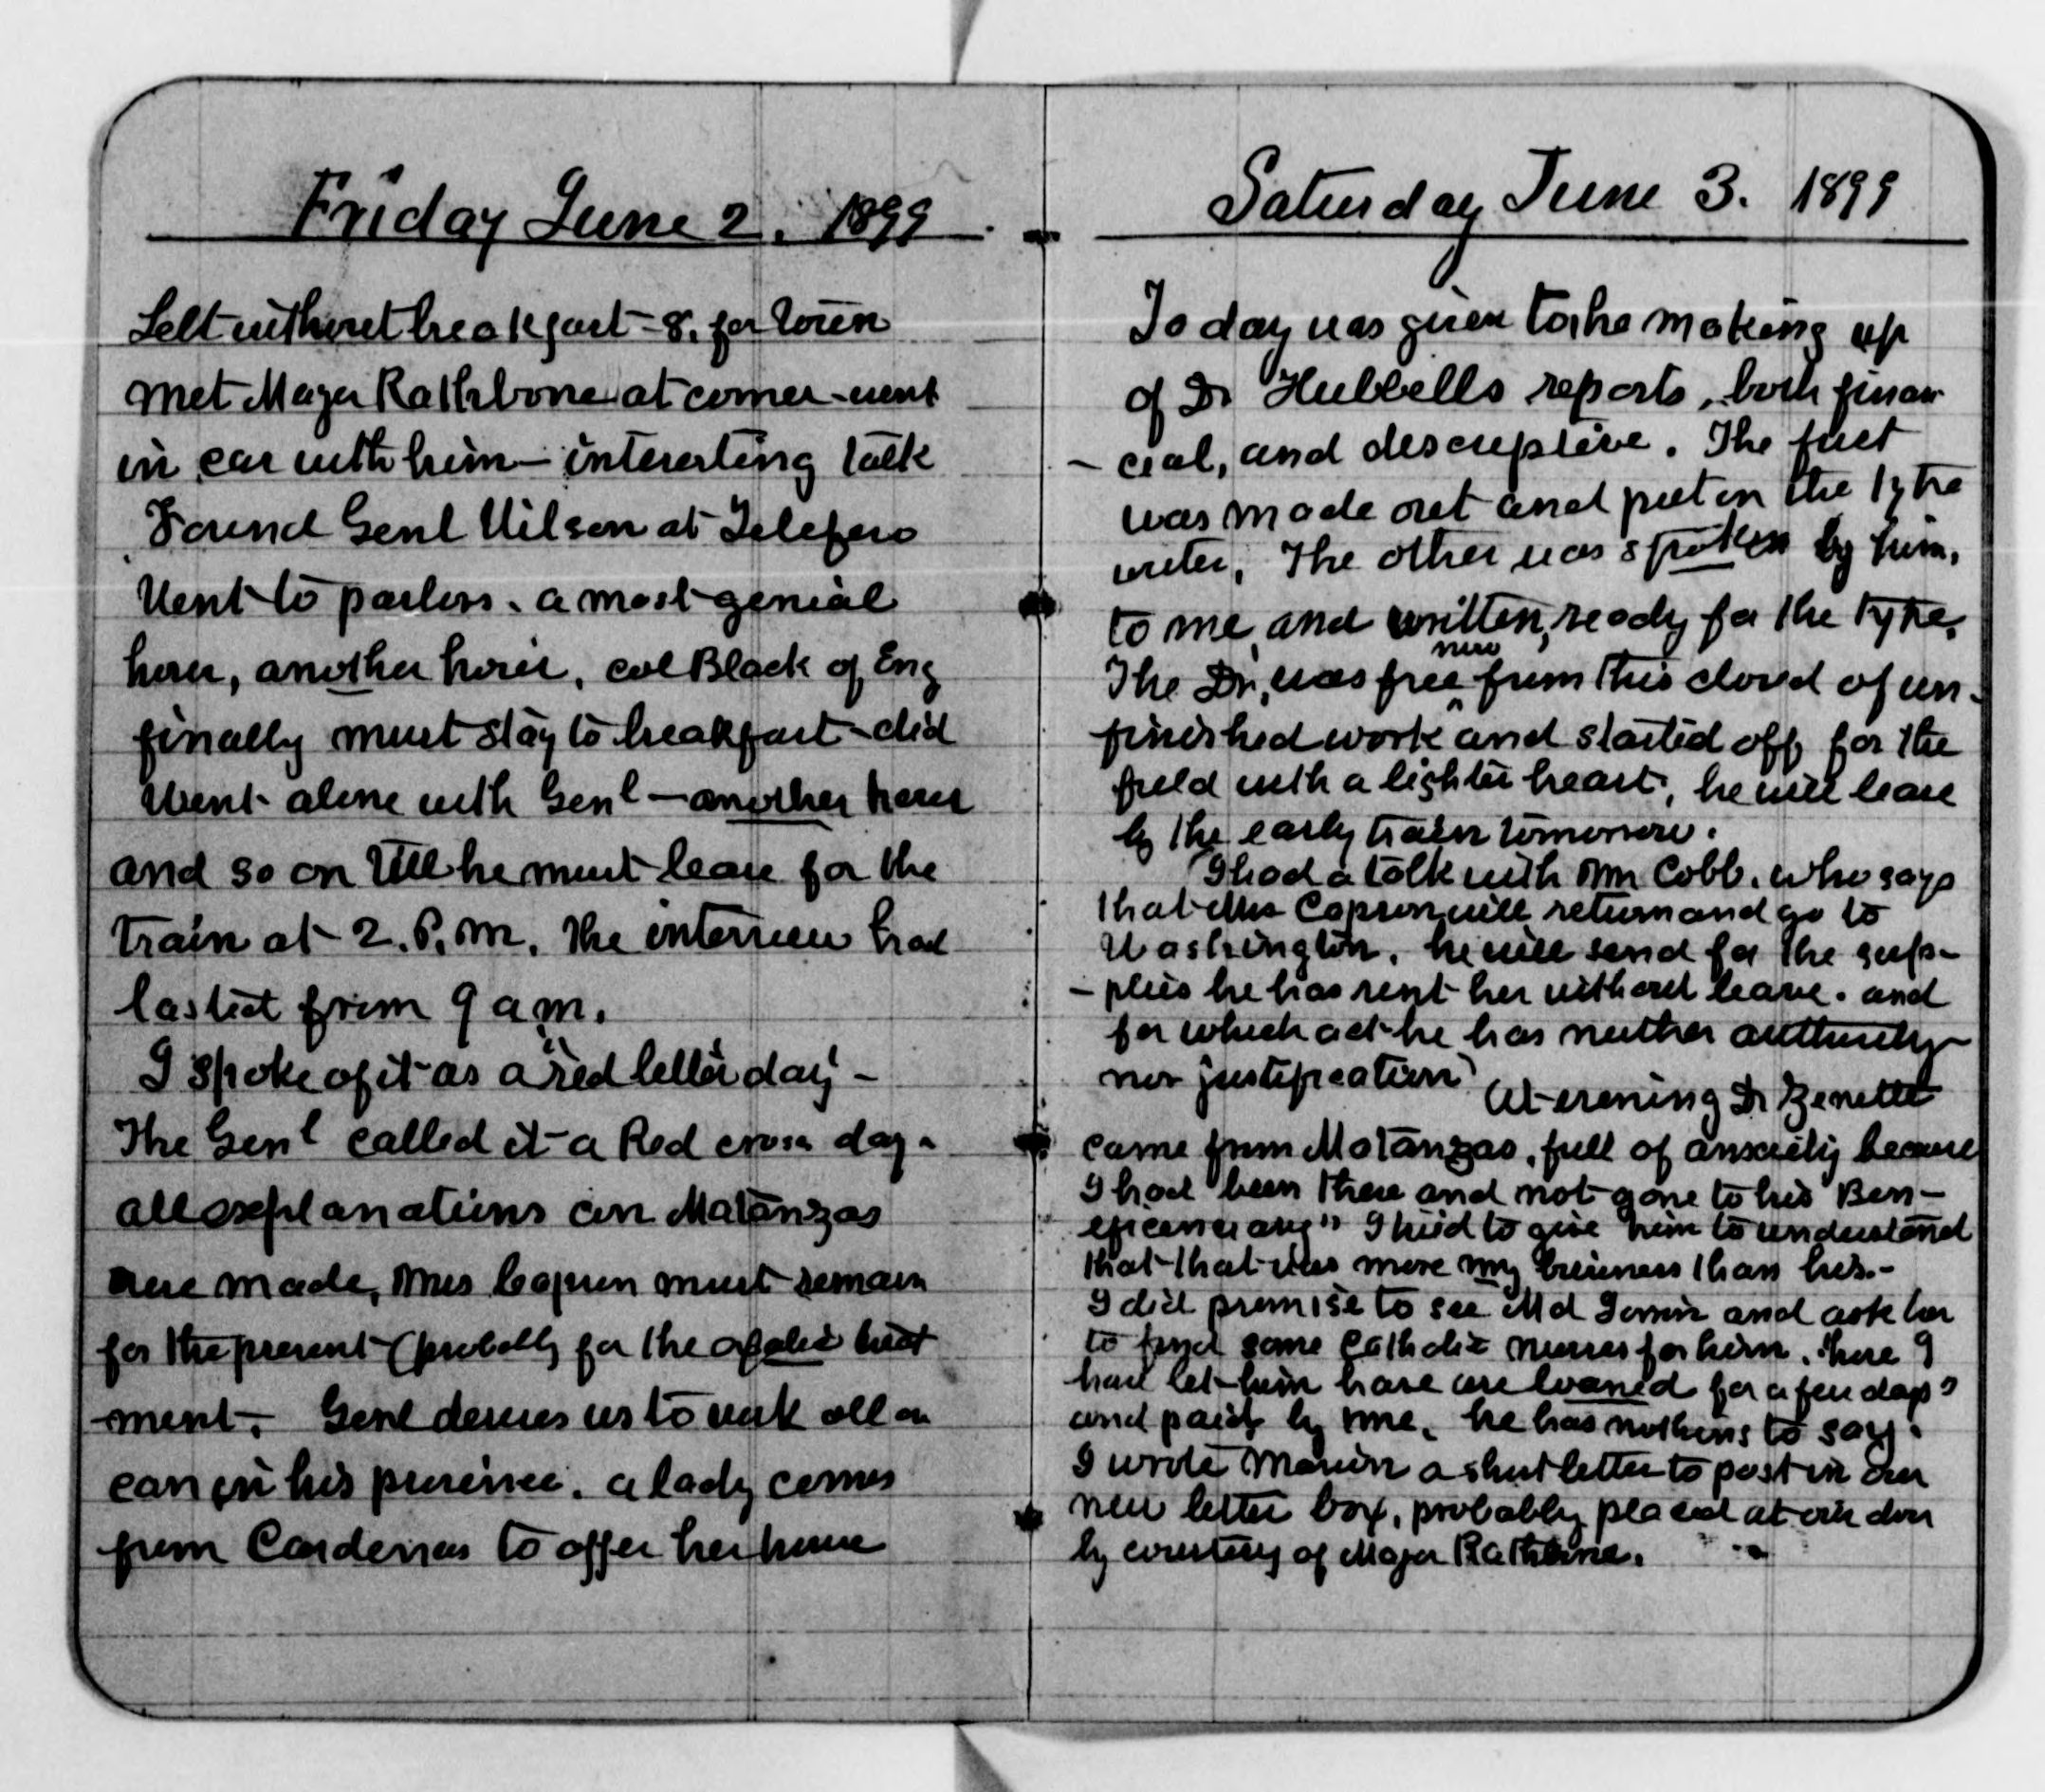 Friday June 2. 1899
Left without breakfast - 8. for town
Met Major Rathbone at corner - went
in car with him - interesting talk
Found Genl Wilson at Telefero
Went to parlors. a most genial
hour, another hour, Col Black of Eng
finally must stay to breakfast - did
Went alone with Genl - another hour
and so on till he must leave for the
train at 2. P.M. The interview had
lasted from 9 a.m.
I spoke of it as a "red letter day" -
The Genl called it a Red cross day.
all explanations on Matanzas
were made, Mrs Capron must remain
for the present (probably for the
ment. Genl desires us to work all we
can in his province. a lady comes
from Cardenas to offer her house
Saturday June 3. 1899
Today was given to the making up
of Dr Hubbells reports, both finan
- cial, and descriptive. The first
was made out and put in the type
writer, The other was spoken by him,
to me, and written, ready for the type.
now
The Dr, was free from this cloud of un-
finished work and started off for the
field with a lighter heart, he will leave
by the early train tomorrow.
I had a talk with Mr Cobb. who says
that Mrs Capron will return and go to
Washington. he will send for the sup-
- plies he has sent her without leave. and
for which act he has neither authority
nor justification At evening Dr
came from Matanzas, full of anxiety because
I had been there and not gone to his "Ben-
I tried to give him to understand
that that was more my business than his. -
I did promise to see Md and ask her
to find some Catholic nurses for him. those I
have let him have are loaned for a few days"
and paid by me. he has nothing to say.
I wrote Marion a short letter to post in our
new letter box, probably placed at our door
by courtesy of Major Rathbone.